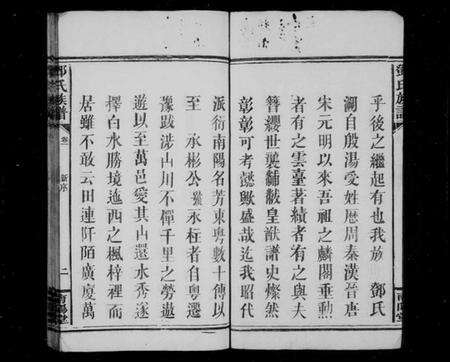 乎後之繼起有也我族 鄧氏
溯自殷湯受姓歷周秦漢晉唐
宋元明以來吾祖之麟閣垂勳
者有之雲臺著績者有之與夫
簪纓世襲黼黻皇猷譜史燦然
彰彰可考懿歟盛哉迄我昭代
鄧氏族譜
南陽堂
派衍南陽名芳東粵數十傳以
至 永彬公 永柱者自粵遷
豫跋涉山川不憚千里之勞遨
遊以至萬邑愛其山還水秀遂
擇白水勝境迤西之楓梓裡而
居雖不敢云田連阡陌廣廈萬
鄧氏族譜
卷一
新序
二
南陽堂